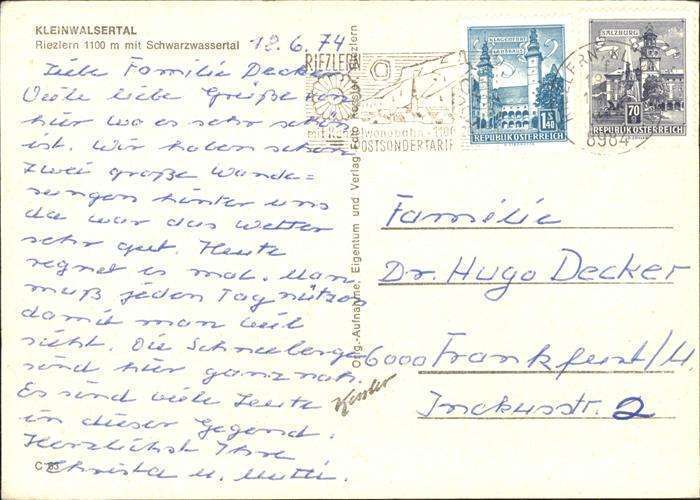 KLEINWALSERTAL
Riezlern 1100 m mit Schwarzwassertal
18.6.74
Liebe Familie Decker
Viele liebe Grüße von
hier wo es sehr schön
ist. Wir haben schon
zwei große Wande=
rungen hinter uns
da war das Wetter
sehr gut. Heute
regnet es mal. Man
muß jeden Tag nützen
damit man viel
sieht. Die Schneeberge
sind hier ganz nah.
Es sind viele Leute
in dieser Gegend.
Herzlichst Ihre
Christa u. Mutti.
C 83
Orig.-Aufnahme, Eigentum und Verlag: Foto Kessler, Riezlern
Kessler
RIEZLERN
1100
POSTSONDERTARIF
KLAGENFURT
LANDHAUS
1.S 40
REPUBLIK ÖSTERREICH
SALZBURG
70
REPUBLIK ÖSTERREICH
RIEZLERN
6984
Familie
Dr. Hugo Decker
6000 Frankfurt/M.
2